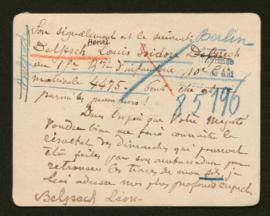 Son signalement est le suivant Berlin
Henri
Delpech Louis Isidore
au 17e d'infanterie 10e Cie
matricule 4475.
parmi les
85796
Dans l'espoir que Votre Majesté
voudra bien me faire connaître le
résultat des démarches qui pourront
être faites par son ambassadeur pour
retrouver les traces de mon fils, je
Lui adresse mes plus profonds respects
Léon